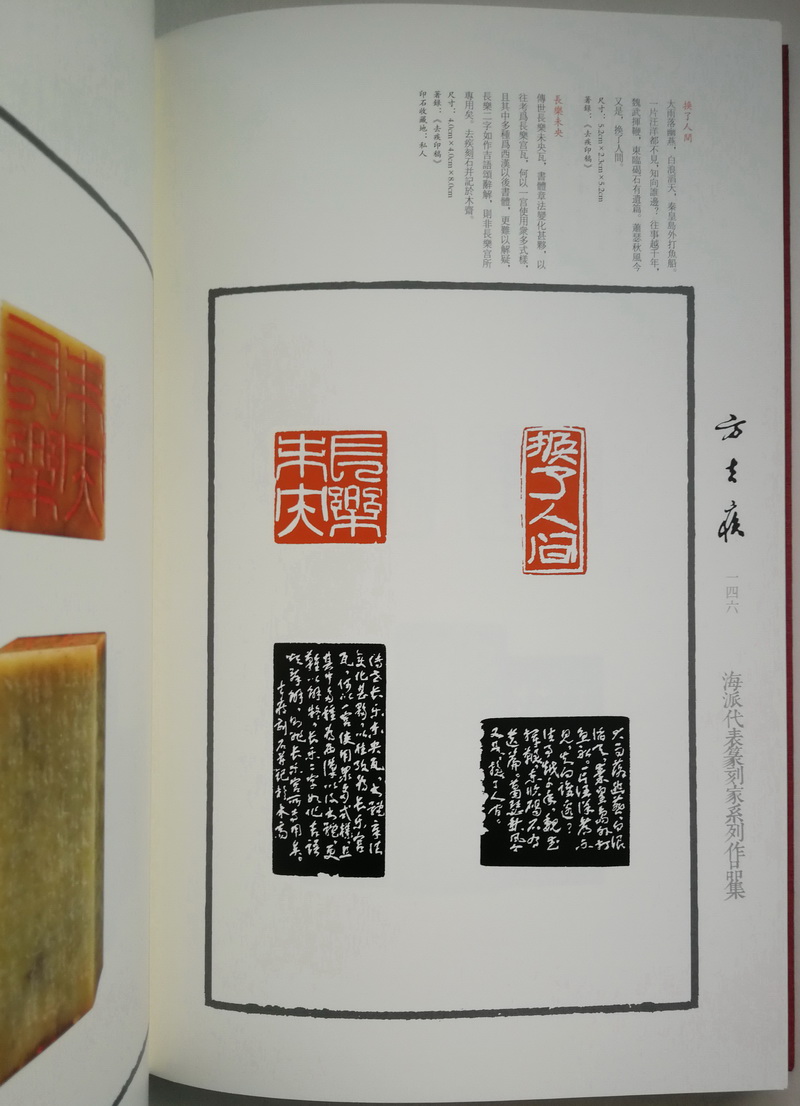 方去疾
一四六
海派代表篆刻家系列作品集
換了人間
大雨落幽燕,白浪滔天,秦皇島外打魚船。
一片汪洋都不見,知向誰邊?往事越千年,
魏武揮鞭,東臨碣石有遺篇。蕭瑟秋風今
又是,換了人間。
尺寸:5.2cm×2.3cm×5.2cm
著錄:《去疾印稿》
長樂未央
傳世長樂未央瓦,書體章法變化甚夥,以
往考爲長樂宮瓦,何以一宮使用衆多式樣,
且其中多種爲西漢以後書體,更難以解疑,
長樂二字如作吉語頌辭解,則非長樂宮所
專用矣。去疾刻石并記於木齋。
尺寸:4.0cm×4.0cm×8.0cm
著錄:《去疾印稿》
印石收藏地:私人
換了人间
長樂
未央
大雨落幽燕白浪
滔天,秦皇島外打
魚船。一片汪洋都不
見,知向誰邊?
往事越千年,魏武
揮鞭,東臨碣石有
遺篇。蕭瑟秋风今
又是,換了人间。
傳世長乐未央瓦,书體章法
變化甚夥,以往考为長乐宮
瓦,何以一宮使用眾多式樣,且
其中多種为西漢以後书體,更
難以解疑。長乐二字如作吉語
頌辞解,則非長乐宮所专用矣。
去疾刻石并記於木斋